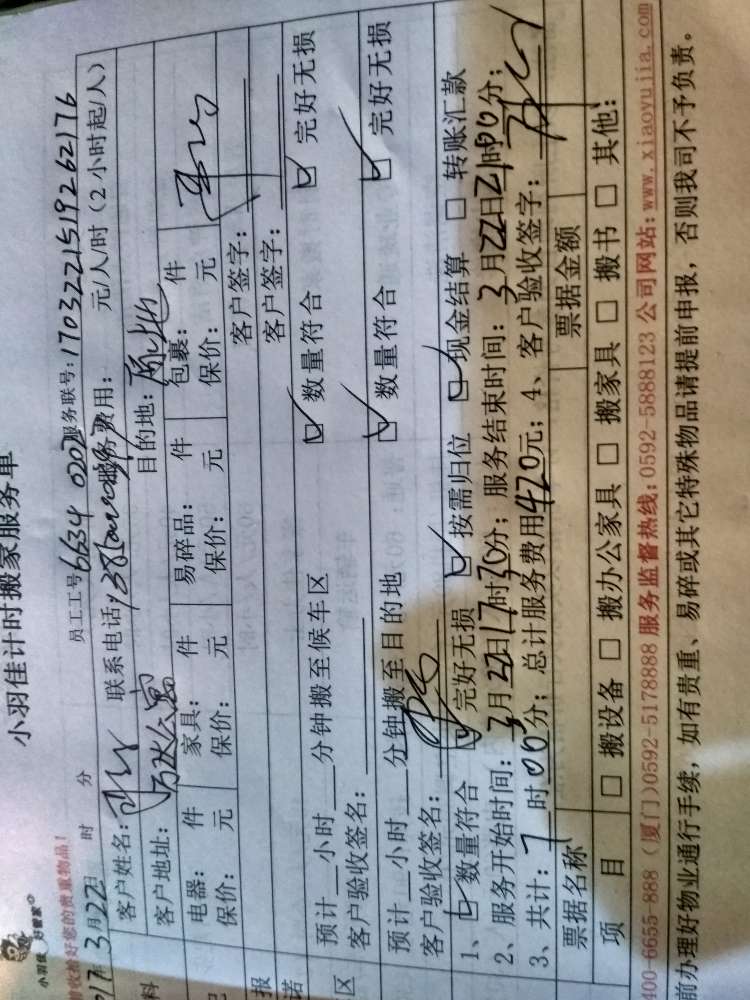 小羽佳计时搬家服务单
小羽佳 好管家
前收捡好您的贵重物品!
员工工号 6634 0202 服务联号:1703221519262176
017年3月22日 时 分
客户姓名: 联系电话: 服务费用: 元/人/时(2小时起/人)
客户地址: 目的地:原地
电器: 件 家具: 件 易碎品: 件 包裹: 件
保价: 元 保价: 元 保价: 元 保价: 元
客户签字:
客户签字:
预计__小时__分钟搬至候车区 ☑ 数量符合 ☑ 完好无损
客户验收签名:
预计__小时__分钟搬至目的地 ☑ 数量符合 ☑ 完好无损
客户验收签名:
1、☑ 数量符合 ☑ 完好无损 ☑ 按需归位 ☑ 现金结算 □ 转账汇款
2、服务开始时间:3月22日17时30分;服务结束时间:3月22日21时00分;
3、共计:7时00分;总计服务费用420元;4、客户验收签字:
票据名称 票据金额
项 目 □ 搬设备 □ 搬办公家具 □ 搬家具 □ 搬书 □ 其他:
400-6655-888 (厦门)0592-5178888 服务监督热线:0592-5888123 公司网站:www.xiaoyujia.com
前办理好物业通行手续,如有贵重、易碎或其它特殊物品请提前申报,否则我司不予负责。